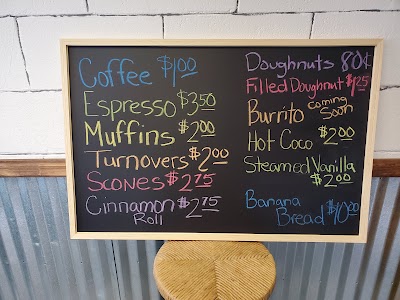 Coffee $1.00
Espresso $3.50
Muffins $2.00
Turnovers $2.00
Scones $2.75
Cinnamon Roll $2.75
Doughnuts 80¢
Filled Doughnut $1.25
Burrito Coming Soon
Hot Coco $2.00
Steamed Vanilla
$2.00
Banana
Bread $10.00